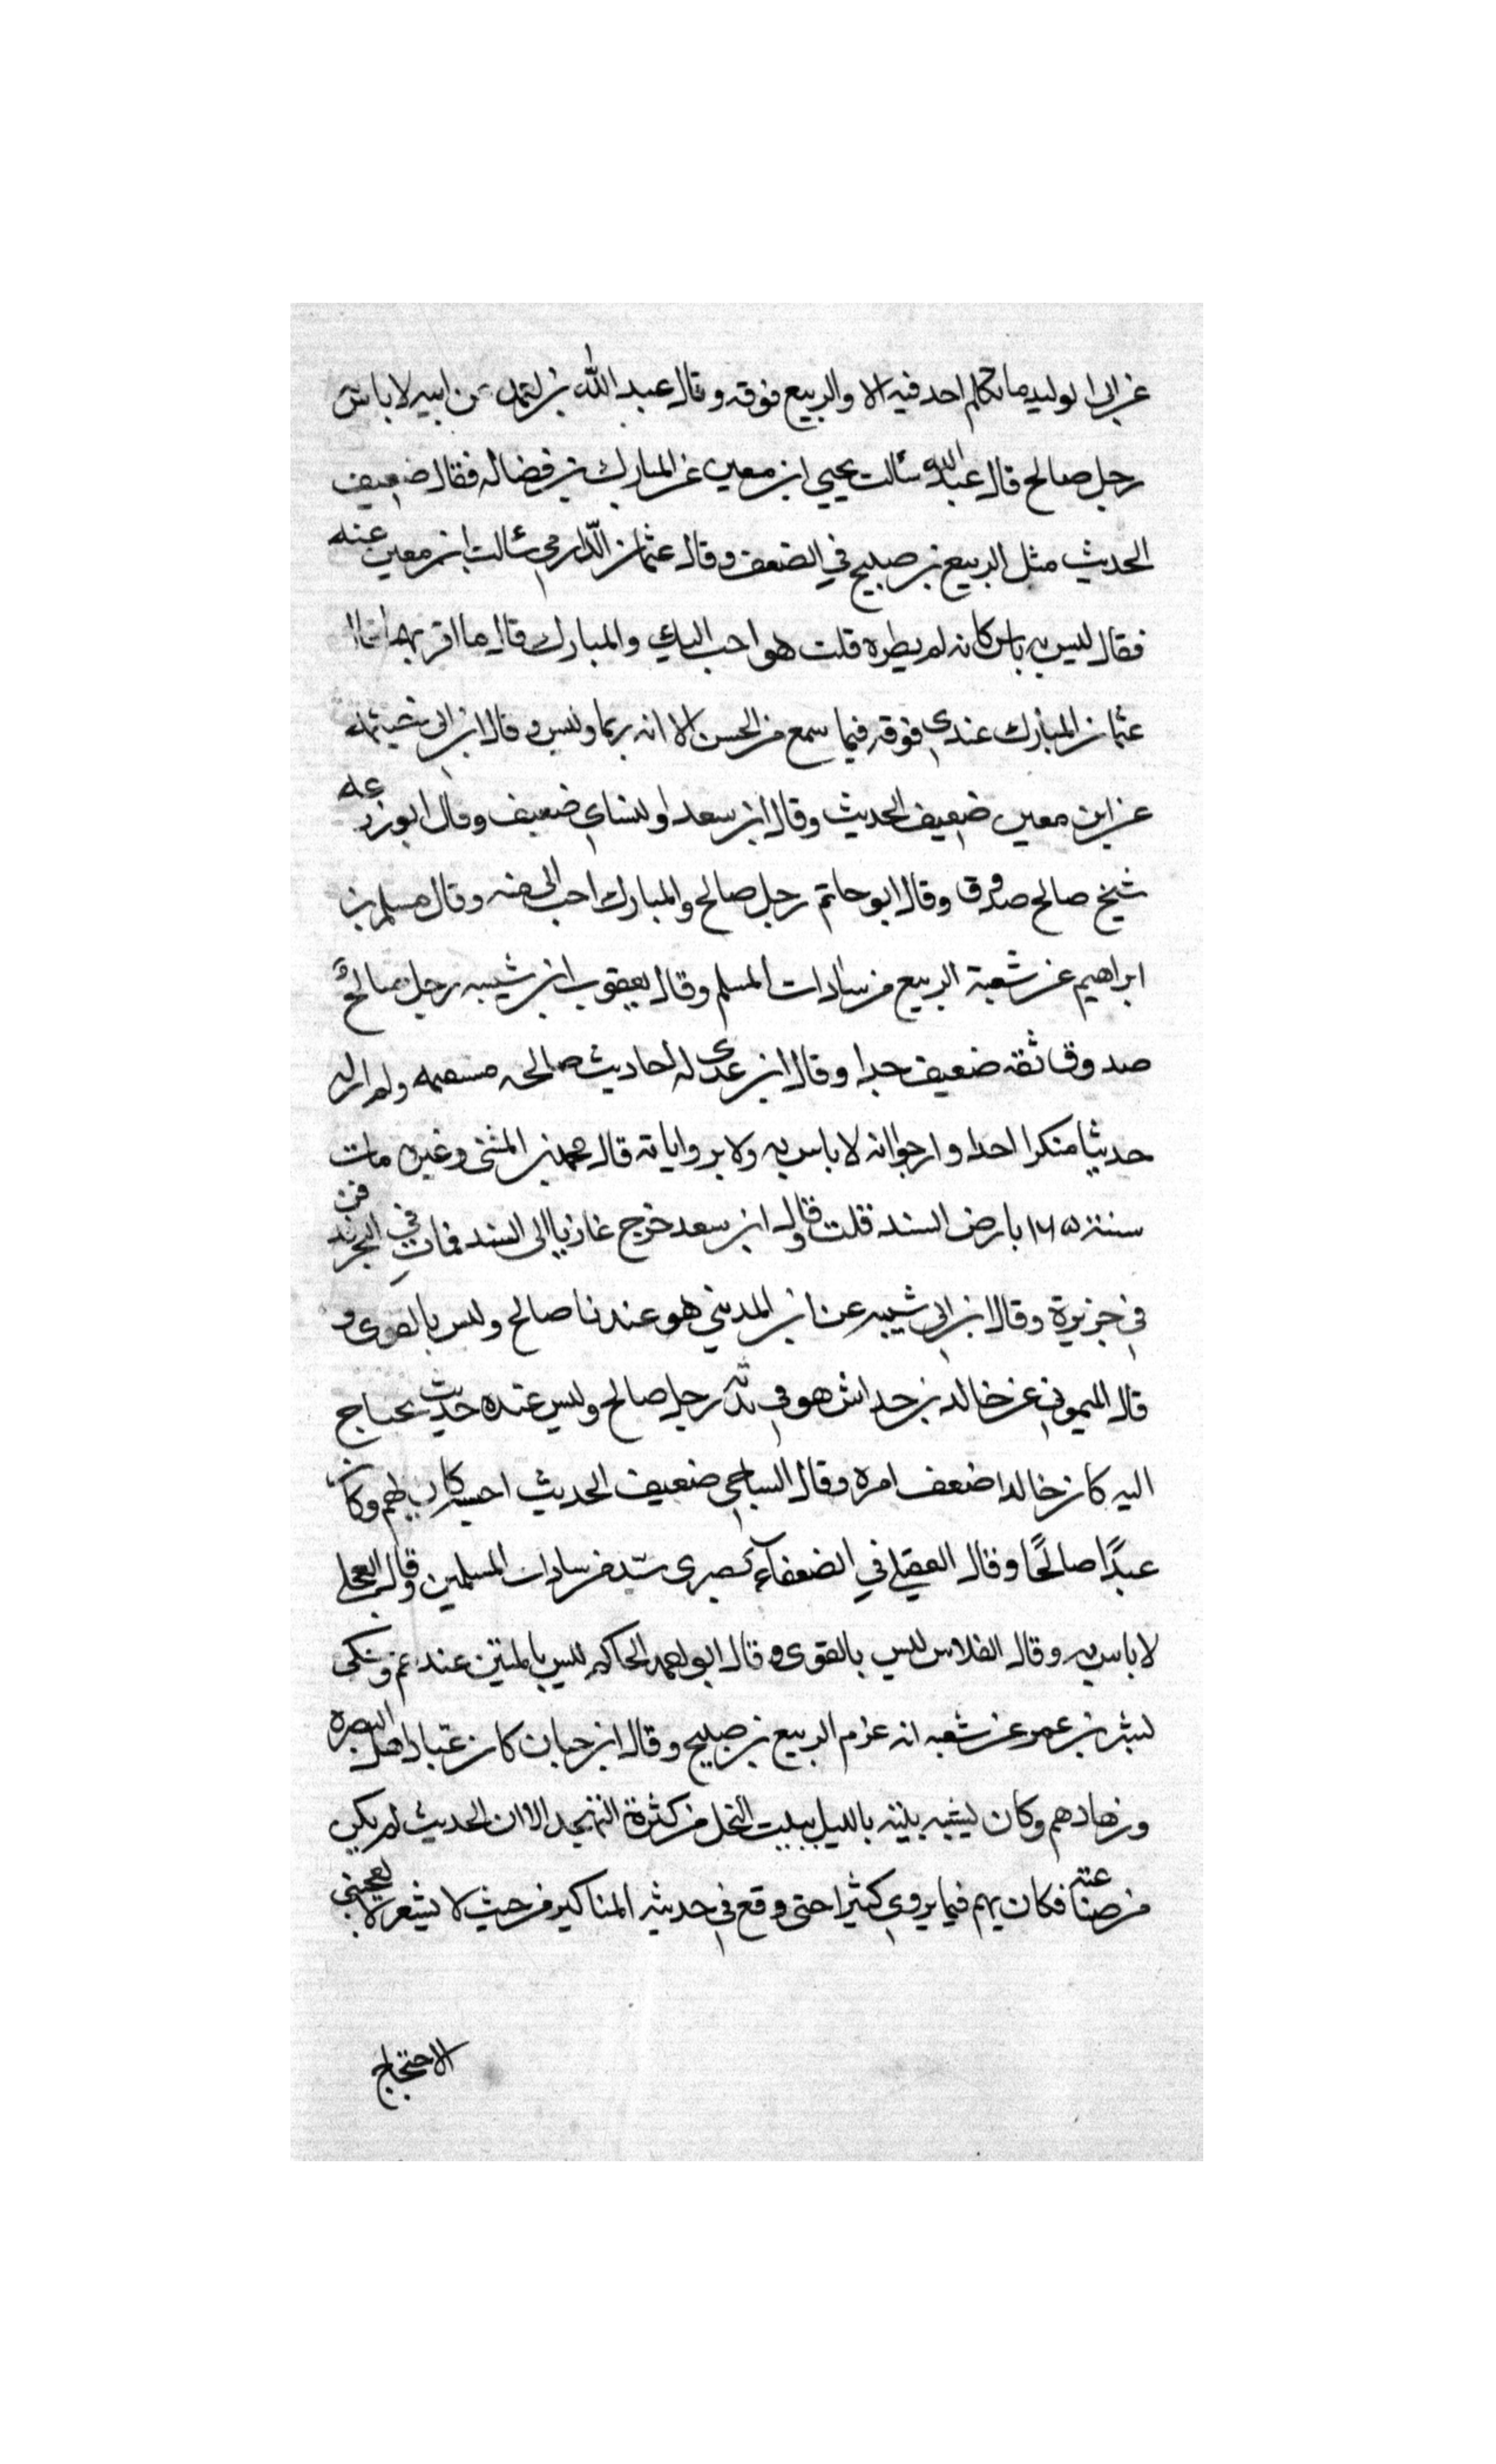 عن ابى الوليد ما تكلم احد فيه الا والربيع فوقه وقال عبد الله بن احمد عن ابيه لا باس به
رجل صالح قال عبد الله سئالت يحيى ابن معين عن المبارك بن فضاله فقال ضعيف
الحديث مثل الربيع بن صبيح في الضعف وقال عثمان الدّارمي سئالت ابن معين عنه
فقال ليس به باس كانه لم يطره قلت هو احب اليك والمبارك قال ما اقربهما قال
عثمان المبارك عندي فوقه فيما سمع من الحسن الا انه ربما دلس وقال ابن ابى خيثمه
عن ابن معين ضعيف الحديث وقال ابن سعد والنساي ضعيف وقال ابو زرعه
شيخ صالح صدوق وقال ابو حاتم رجل صالح والمبارك احب الى منه وقال مسلم بن
ابراهيم عن شعبة الربيع من سادات المسلم وقال يعقوب ابن شيبه رجل صالحٌ
صدوق ثقه ضعيف جدا وقال ابن عدي له احاديث صالحه مستقيمه ولم ار له
حديثا منكرا احدا وارجوا انه لا باس به ولا برواياته قال محمد بن المثنى وغيره مات
سنة ١٦٠ بارض السند قلت وقال ابن سعد خرج غازيا الى السند فمات في البحر فدفن
في جزيرة وقال ابن ابي شيبه عن ابن المديني هو عندنا صالح وليس بالقوى و
قال الميموني عن خالد بن خداش هو في هديه رجل صالح وليس عنده حديث يحتاج
اليه كان خالدا ضعف امره وقال الساجي ضعيف الحديث احسبه كان يهم وكان
عبدًا صالحًا وقال العقيلي في الضعفآء بصرى سيّد من سادات المسلمين وقال العجلي
لا باس به وقال الفلاس ليس بالقوى وقال ابو احمد الحاكم ليس بالمتين عندهم وحكى
بشر بن عمر عن شعبه انه عزم الربيع بن صبيح وقال ابن حبان كان من عباد اهل البصرة
وزهادهم وكان يشبه بيته بالليل ببيت النحل من كثرة التهجد الا ان الحديث لم يكن
من صناعته فكان يهم فيما يروي كثيرا حتى وقع في حديثه المناكير من حيث لا يشعر لا يعجبني
الاحتجاج